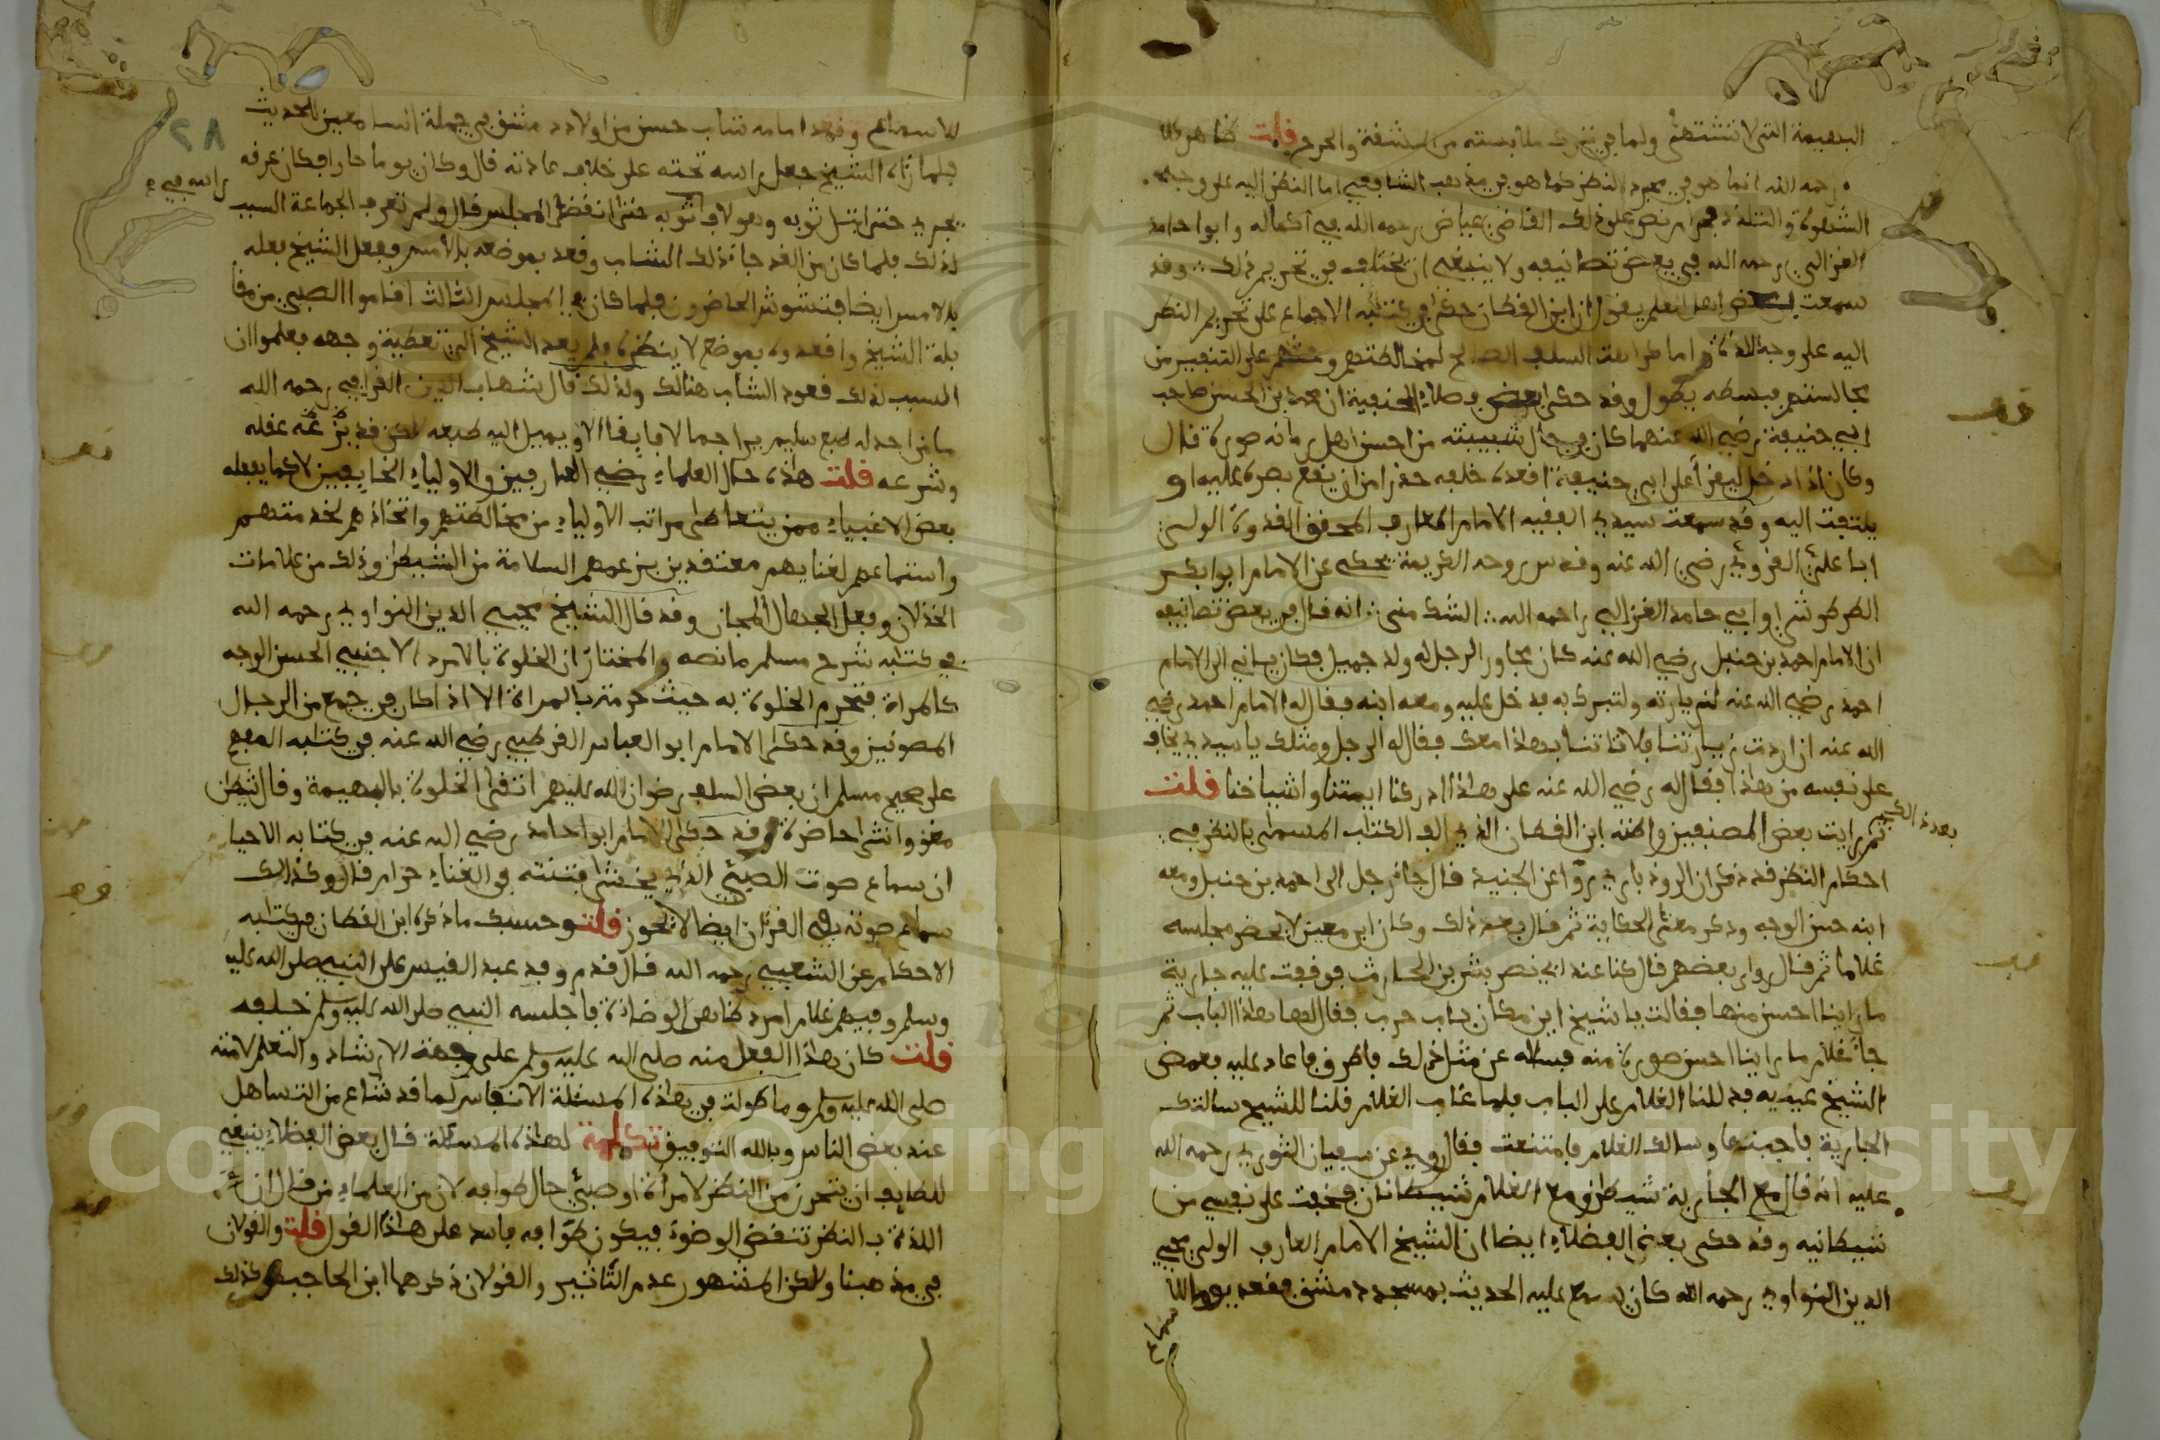 البهيمة التي لا تشتهى ولما في تحرك ملابسته من المشقة والحرج قلت كلامه
رحمه الله انما هو في مجرد النظر كما هو في مذهب الشافعي اما النظر اليه على وجه
الشهوة والتلذذ فحرام نص على ذلك القاضي عياض رحمه الله في اكماله وابو حامد
الغزالي رحمه الله في بعض تصانيفه ولا ينبغي ان يختلف في تحريم ذلك وقد
سمعت بعض اهل العلم يقول ان ابن القطان حكى في كتابه الاجماع على تحريم النظر
اليه على وجه اللذة واما كراهة السلف الصالح لمخالطتهم وحثهم على التنفير من
مجالستهم فبسطه يطول وقد حكى بعض فضلاء الحنفية ان محمد بن الحسن صاحب
ابي حنيفة رضي الله عنهما كان في حال شبيبته من احسن اهل زمانه صورة قال
وكان اذا دخل ليقرأ على ابي حنيفة اقعده خلفه حذرا من ان يقع بصره عليه او
يلتفت اليه وقد سمعت سيدي الفقيه الامام العارف المحقق القدوة الولي
ابا علي القروي رضي الله عنه وقدس روحه الكريمة يحكي عن الامام ابو بكر
الطرطوشي او ابي حامد الغزالي رحمه الله الشك مني انه قال في بعض تصانيفه
ان الامام احمد بن حنبل رضي الله عنه كان يجاور الرجل له ولد جميل فكان ياتي الى الامام
احمد رضي الله عنه لزيارته ولتبرك به فدخل عليه ومعه ابنه فقال له الامام احمد رضي
الله عنه ان اردت زيارتنا فلا تاتنا بهذا معك فقال له الرجل ومثلك يا سيدي يخاف
على نفسه من هذا فقال له رضي الله عنه على هذا ادركنا ايمتنا واشياخنا قلت
ثم رايت بعض المصنفين واظنه ابن القطان الذي الف الكتاب المسمى بالنظر في
احكام النظر قد ذكر ان الروذباري روى عن الجنيد قال جاء رجل الى احمد بن حنبل ومعه
ابنه حسن الوجه وذكر معنى الحكاية ثم قال بعد ذلك وكان ابن معين لا يحضر مجلسه
غلاما ثم قال روى بعضهم قال كنا عند ابي نصر بشر بن الحارث فوقفت عليه جارية
ما راينا احسن منها فقالت يا شيخ اين مكان باب حرب فقال لها هذا الباب ثم
جاء غلام ما راينا احسن صورة منه فسله عن مثل ذلك فاطرق فاعاد عليه فغمض
الشيخ عينيه فدللنا الغلام على الباب فلما غاب الغلام قلنا للشيخ سالتك
الجارية فاجبتها وسالك الغلام فامتنعت فقال روي عن سفيان الثوري رحمه الله
عليه انه قال مع الجارية شيطان ومع الغلام شيطانان فخفت على نفسي من
شيطانيه وقد حكى بعض الفضلاء ايضا ان الشيخ الامام العارف الولي محيي
الدين النواوي رحمه الله كان يسمع عليه الحديث بمسجد دمشق فقعد يوما
سماع
للاسماع وقعد امامه شاب حسن من اولاد دمشق في جملة السامعين للحديث
فلما راه الشيخ جعل راسه تحته على خلاف عادته قال وكان يوما حارا فكان عرقه
يجري حتى ابتل ثوبه وهو لا حتى انفض المجلس قال ولم تعرف الجماعة السبب
لذلك فلما كان من الغد جاء ذلك الشاب وقعد بموضعه بالامس ففعل الشيخ فعله
بالامس ايضا فتشوش الحاضرون فلما كان في المجلس الثالث اقاموا الصبي من مقا
بلة الشيخ واقعدوه بموضع لا ينظره فلم يعد الشيخ الى تغطية وجهه فعلموا ان
السبب لذلك قعود الشاب هنالك ولذلك قال شهاب الدين القرافي رحمه الله
ما من احد له طبع سليم يرى جمالا فايقا الا ويميل اليه طبعه لكن قد عقله
وشرعه قلت هذه حال العلماء رضي العارفين والاولياء الخايفين لا كما يفعله
بعض الاغبياء ممن يتعاطى مراتب الاولياء من مخالطتهم واتخاذهم لخدمتهم
واستماعهم لغنايهم معتقدين بزعمهم السلامة من الشيطان وذلك من علامات
الخذلان وفعل الجهال المجان وقد قال الشيخ محيي الدين النواوي رحمه الله
في كتابه شرح مسلم ما نصه والمختار ان الخلوة بالامرد الاجنبي الحسن الوجه
كالمراة فتحرم الخلوة به حيث حرمت بالمراة الا اذا كان في جمع من الرجال
المصونين وقد حكى الامام ابو العباس القرطبي رضي الله عنه في كتابه المفهم
على صحيح مسلم ان بعض السلف رضوان الله عليهم اتقى الخلوة بالبهيمة وقال شيطان
مغو وانثى حاضرة وقد حكى الامام ابو حامد رضي الله عنه في كتابه الاحيا
ان سماع صوت الصبي الذي يخشى فتنته في الغناء حرام قال وكذلك
سماع صوته في القرءان ايضا لا يجوز قلت وحسبك ما ذكره ابن القطان في كتابه
الاحكام عن الشعبي رحمه الله قال قدم وفد عبد القيس على النبي صلى الله عليه
وسلم وفيهم غلام امرد ظاهر الوضاءة فاجلسه النبي صلى الله عليه وسلم خلفه
قلت كان هذا الفعل منه صلى الله عليه وسلم على جهة الارشاد والتعلم لامته
صلى الله عليه وسلم وما طولت في هذه المسئلة الانفاس لما قد شاع من التساهل
عند بعض الناس وبالله التوفيق تكملة لهذه المسئلة قال بعض الفضلاء ينبغي
للطايف ان يتحرز من النظر لامراة او صبي حال طوافه لان من العلماء من قال ان
اللذة بالنظر تنقض الوضوء فيكون طوافه فاسد على هذا القول قلت والقولان
في مذهبنا ولكن المشهور عدم التاثير والقولان ذكرهما ابن الحاجب وكذلك